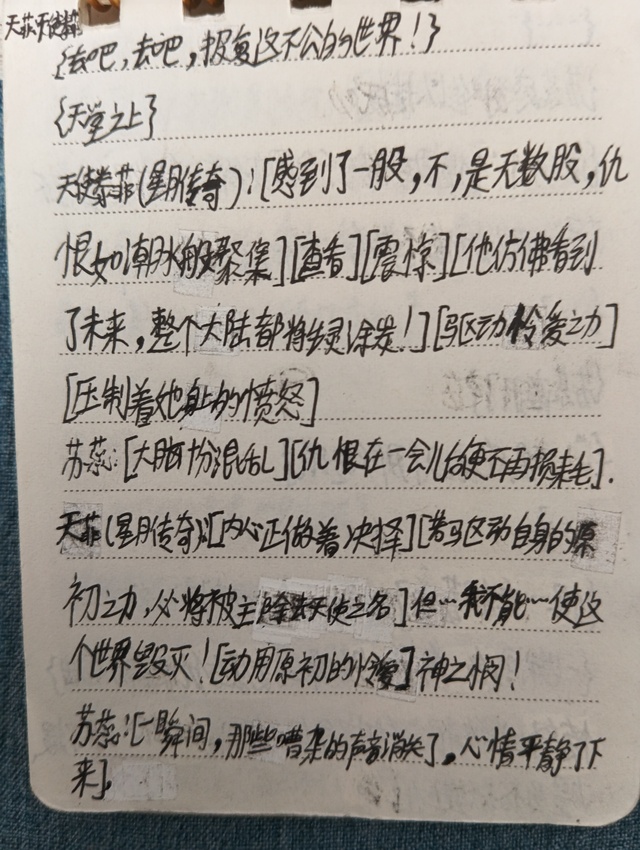 {去吧,去吧,报复这不公的世界!}
{天堂之上}
天使蒂菲(星月传奇):[感到了一股,不,是无数股,仇
恨如潮水般聚集][查看][震惊][他仿佛看到
了未来,整个大陆都将生灵涂炭!][驱动怜爱之力]
[压制着她身上的愤怒]
苏蕊:[大脑一份混乱][仇恨在一会儿后便不再损耗].
天菲(星月传奇):[内心正做着决择][若驱动自身的原
初之力,必将被主除去天使之名]但…我不能…使这
个世界毁灭![动用原初的怜爱]神之悯!
苏蕊:[一瞬间,那些嘈杂的声音消失了,心情平静了下
来].